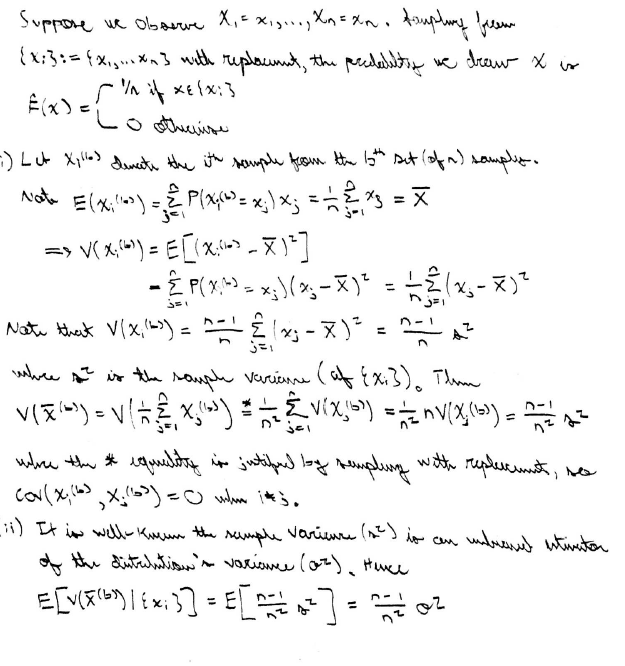 Suppose we observe X₁ = x₁, ..., Xₙ = xₙ. Sampling from
{xᵢ} := {x₁, ... xₙ} with replacement, the probability we draw x is
P̂(x) = { 1/n if x ∈ {xᵢ}
0 otherwise
i) Let Xᵢ⁽ᵇ⁾ denote the ith sample from the bᵗʰ set (of n) samples.
Note E(Xᵢ⁽ᵇ⁾) = Σⱼ₌₁ⁿ P(Xᵢ⁽ᵇ⁾ = xⱼ) xⱼ = 1/n Σⱼ₌₁ⁿ xⱼ = X̄
⇒ V(Xᵢ⁽ᵇ⁾) = E[(Xᵢ⁽ᵇ⁾ - X̄)²]
= Σⱼ₌₁ⁿ P(Xᵢ⁽ᵇ⁾ = xⱼ)(xⱼ - X̄)² = 1/n Σⱼ₌₁ⁿ (xⱼ - X̄)²
Note that V(Xᵢ⁽ᵇ⁾) = n-1/n Σⱼ₌₁ⁿ (xⱼ - X̄)² = n-1/n s²
where s² is the sample variance (of {xᵢ}). Then
V(X̄⁽ᵇ⁾) = V(1/n Σⱼ₌₁ⁿ Xⱼ⁽ᵇ⁾) =* 1/n² Σⱼ₌₁ⁿ V(Xⱼ⁽ᵇ⁾) = 1/n² nV(Xⱼ⁽ᵇ⁾) = n-1/n² s²
where the * equality is justified by sampling with replacement, so
cov(Xᵢ⁽ᵇ⁾, Xⱼ⁽ᵇ⁾) = 0 when i≠j.
ii) It is well-known the sample variance (s²) is an unbiased estimator
of the distribution's variance (σ²). Hence
E[V(X̄⁽ᵇ⁾) | {xᵢ}] = E[n-1/n² s²] = n-1/n² σ²